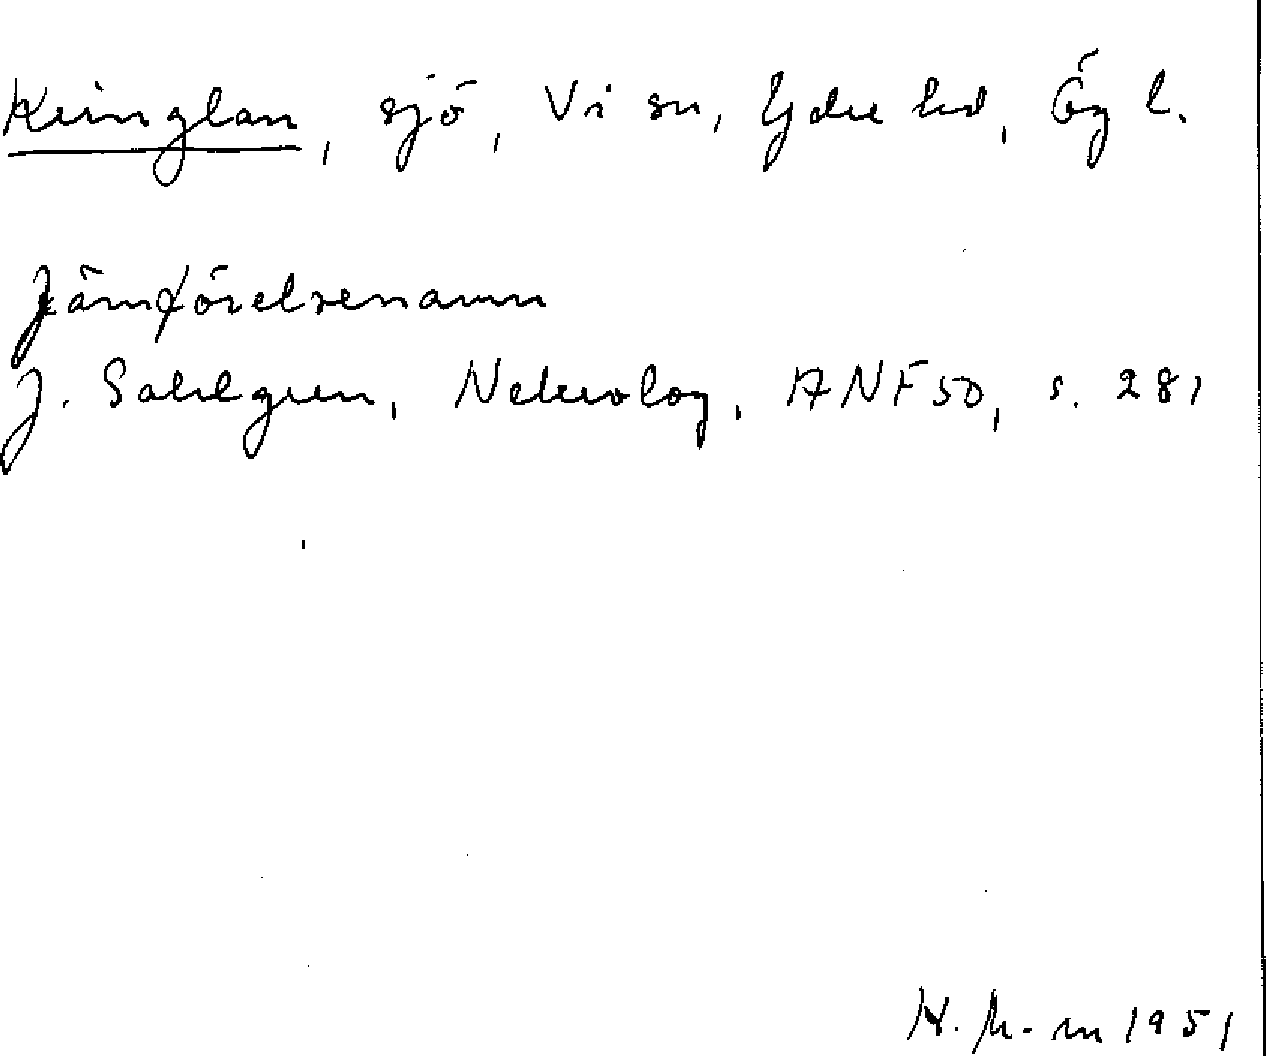 Kringlan, sjö, Vi sn, Ydre hd, Ög l.
Jämförelsenamn
J. Sahlgren, Nekrolog, ANF 50, s. 281
H. 1951